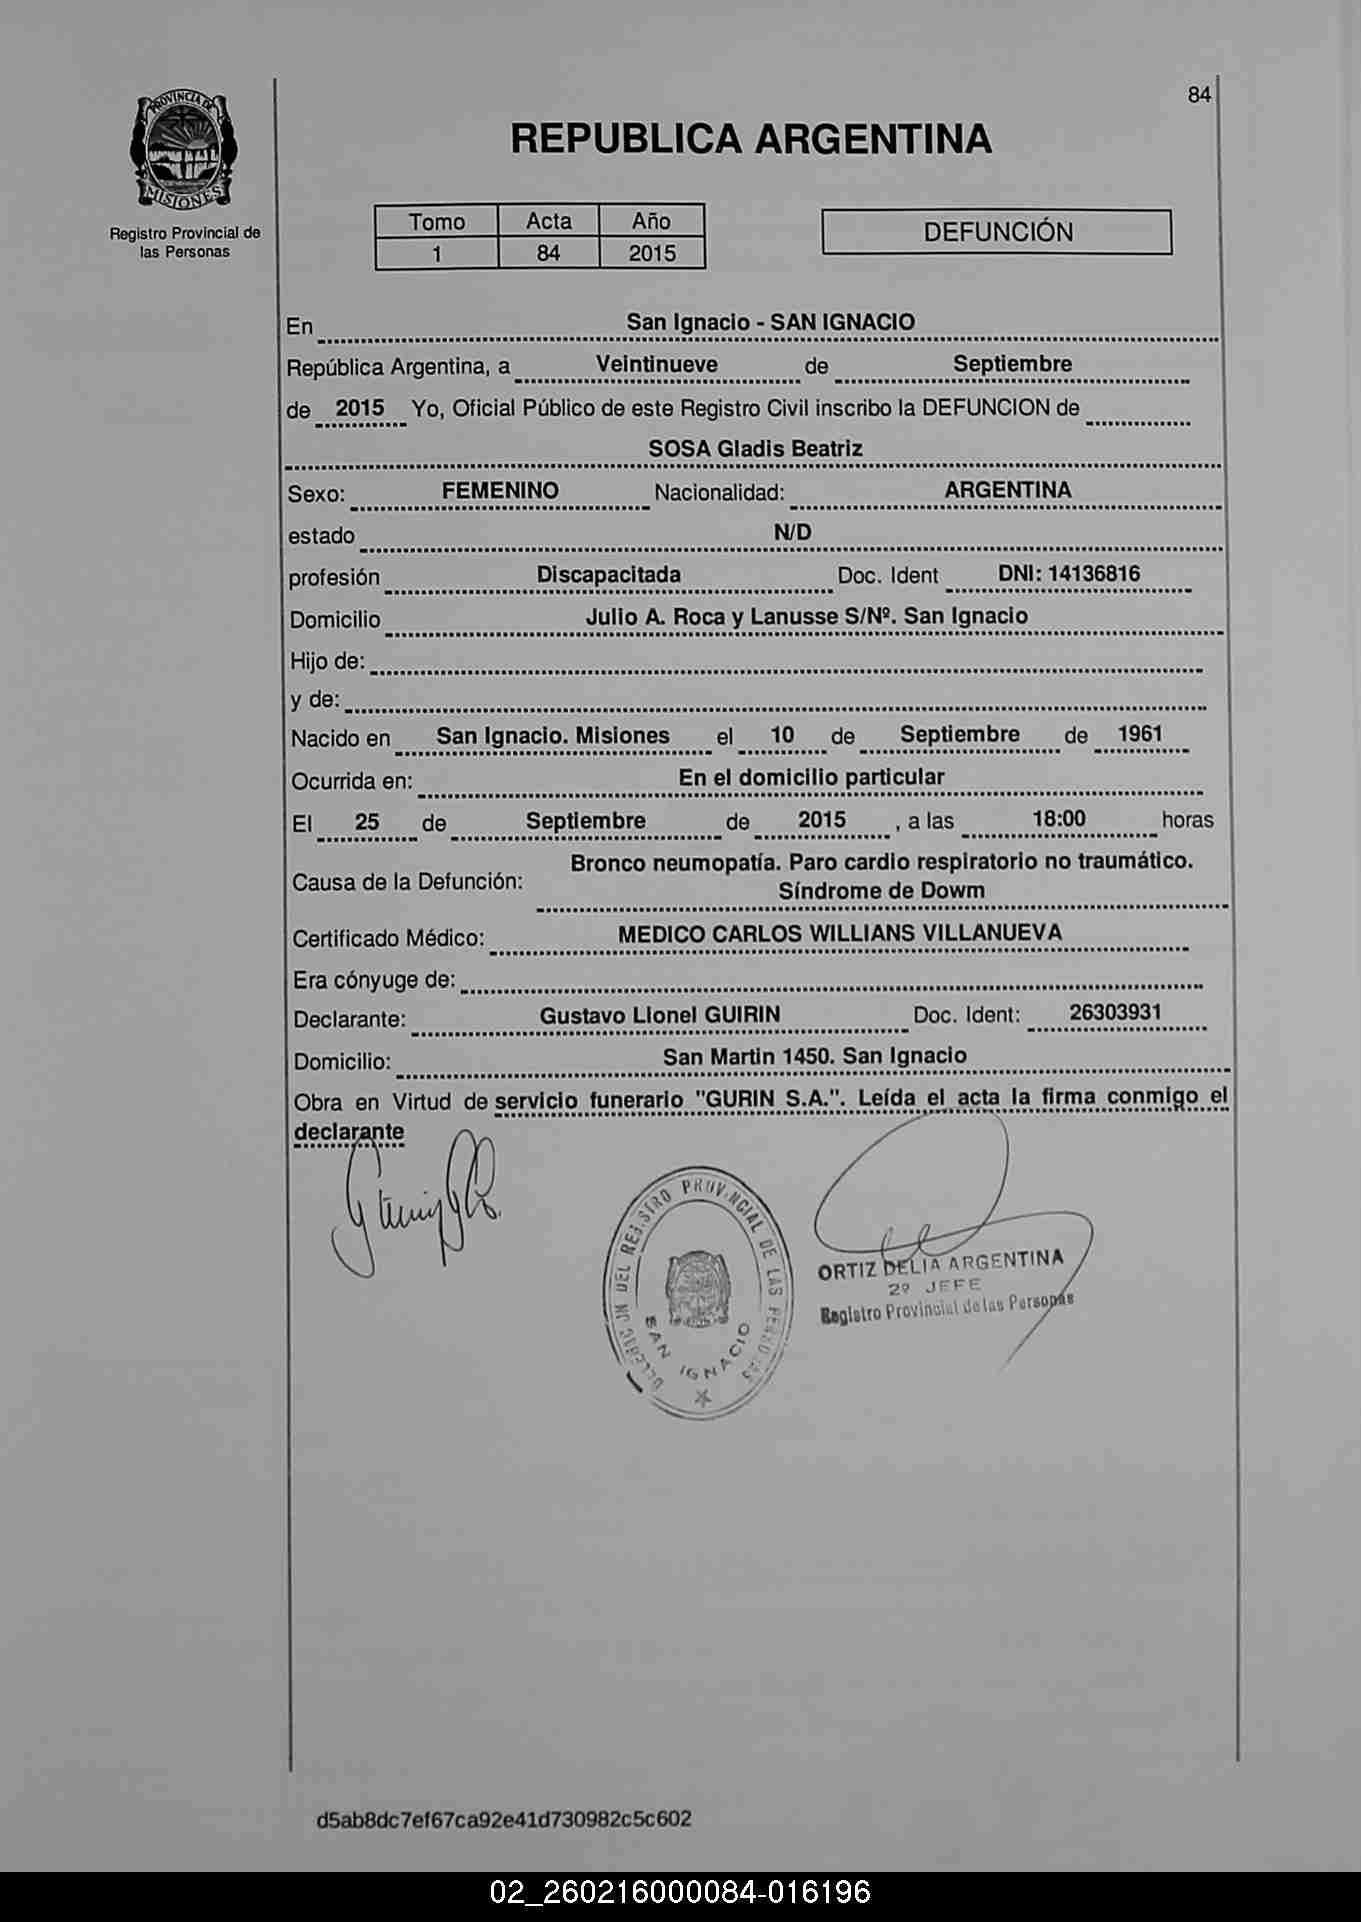 84
PROVINCIA DE
MISIONES
Registro Provincial de
las Personas
REPUBLICA ARGENTINA
Tomo Acta Año
1 84 2015
DEFUNCIÓN
En San Ignacio - SAN IGNACIO
República Argentina, a Veintinueve de Septiembre
de 2015 Yo, Oficial Público de este Registro Civil inscribo la DEFUNCION de
SOSA Gladis Beatriz
Sexo: FEMENINO Nacionalidad: ARGENTINA
estado N/D
profesión Discapacitada Doc. Ident DNI: 14136816
Domicilio Julio A. Roca y Lanusse S/Nº. San Ignacio
Hijo de:
y de:
Nacido en San Ignacio. Misiones el 10 de Septiembre de 1961
Ocurrida en: En el domicilio particular
El 25 de Septiembre de 2015 , a las 18:00 horas
Causa de la Defunción: Bronco neumopatía. Paro cardio respiratorio no traumático.
Síndrome de Dowm
Certificado Médico: MEDICO CARLOS WILLIANS VILLANUEVA
Era cónyuge de:
Declarante: Gustavo Lionel GUIRIN Doc. Ident: 26303931
Domicilio: San Martin 1450. San Ignacio
Obra en Virtud de servicio funerario "GURIN S.A.". Leída el acta la firma conmigo el
declarante
DEL REGISTRO PROVINCIAL DE LAS PERSONAS
SAN IGNACIO
ORTIZ DELIA ARGENTINA
2º JEFE
Registro Provincial de las Personas
d5ab8dc7ef67ca92e41d730982c5c602
02_260216000084-016196